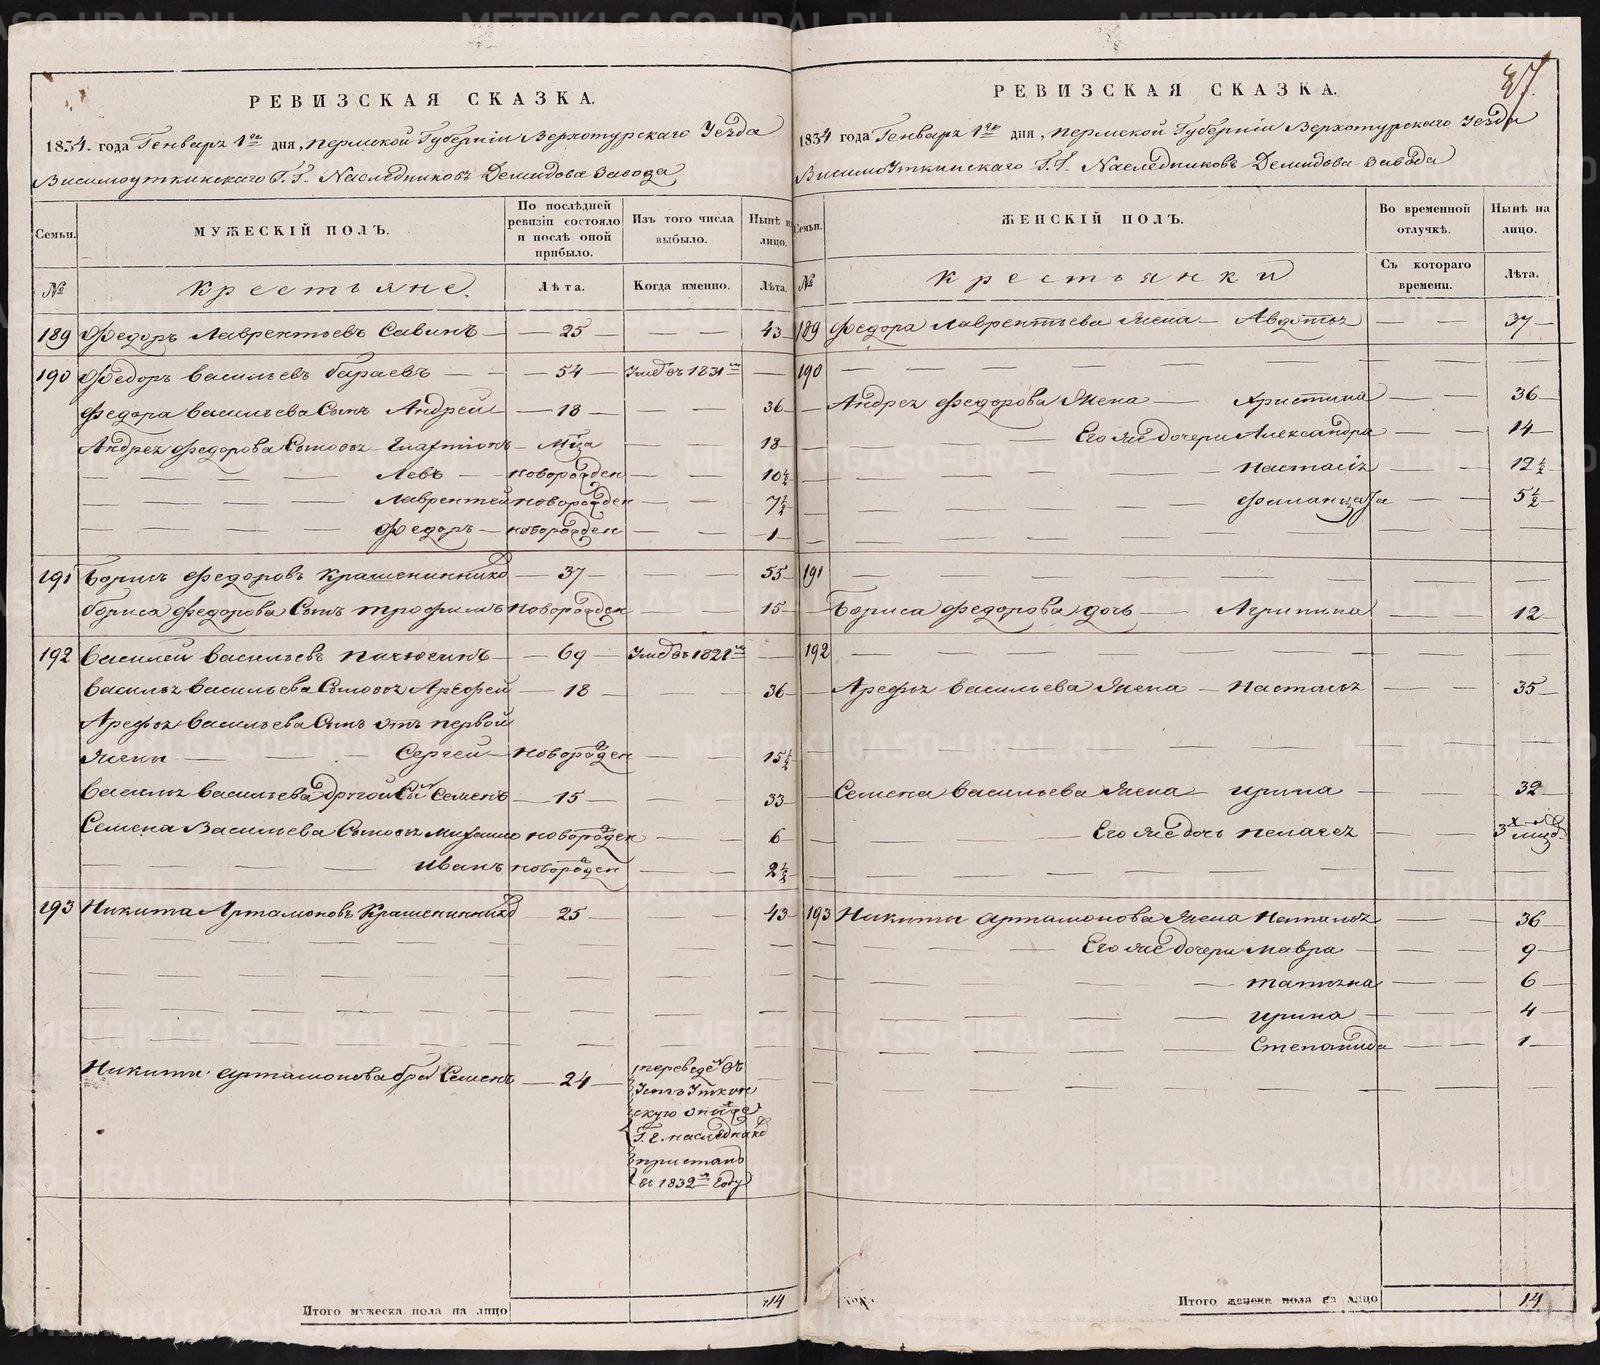 РЕВИЗСКАЯ СКАЗКА.
1834. года Генваря 1го дня, Пермской Губерніи Верхотурскаго Уезда
Висимоуткинскаго Г.Г. Наследниковъ Демидова Завода
Семьи.
МУЖЕСКІЙ ПОЛЪ.
По послѣдней ревизіи состояло и послѣ оной прибыло.
Изъ того числа выбыло.
Нынѣ на лицо.
№
Крестьяне.
Лѣта.
Когда именно.
Лѣта.
189 Федоръ Лаврентьевъ Савинъ — 25 — — 43
190 Федоръ Васильевъ Бараевъ — — 54 — Умеръ въ 1831м —
Федора Васильева Сынъ Андрей — 18 — — 36
Андрея Федорова Сыновья — Мца — — 18
Левъ — новорожден — — 10½
Лаврентей новорожден — — 7½
Федоръ — новорожден — — 1
191 Борисъ Федоровъ Крашенинников — 37 — — 55
Бориса Федорова Сынъ Трофимъ новорожден — — 15
192 Василей Васильевъ — 69 — Умеръ въ 1821м —
Василья Васильева Сыновья Арефей — 18 — — 36
Арефья Васильева Сынъ отъ первой
Жены — — — Сергей — новорожден — — 15½
Василья Васильева другой Сын Семенъ — 15 — — 33
Семена Васильева Сыновья Михаило новорожден — — 6
Иванъ новорожден — — 2½
193 Никита Артамоновъ Крашенинников — 25 — — 43
Никиты Артамонова брат Семенъ — 24 —
переведен въ
Усть Уткин
скую оныхже
Г.Г. наследников
пристань
въ 1832м Году
Итого мужеска пола на лицо 14
37.
РЕВИЗСКАЯ СКАЗКА.
1834 года Генваря 1го дня, Пермской Губерніи Верхотурскаго Уезда
Висимо Уткинскаго Г.Г. Наследниковъ Демидова Завода
Семьи.
ЖЕНСКІЙ ПОЛЪ.
Во временной отлучкѣ.
Нынѣ на лицо.
№
Крестьянки
Съ котораго времени.
Лѣта.
189 Федора Лаврентьева Жена — Авдотья — — 37
190 — — —
Андрея Федорова Жена — Христина — — 36
Его же дочери Александра — — 14
Настасія — — 12½
— — 5½
191 — — —
Бориса Федорова дочь — Агрипина — — 12
192 — — —
Арефья Васильева Жена — Настасья — — 35
Семена Васильева Жена — Ирина — — 32
Его же дочь Пелагея — — 3х мцов
193 Никиты Артамонова Жена Наталья — — 36
Его же дочери Мавра — — 9
Татьяна — — 6
Ирина — — 4
Степанида — — 1
Итого женска пола на лицо 14
METRIKI.GASO-URAL.RU